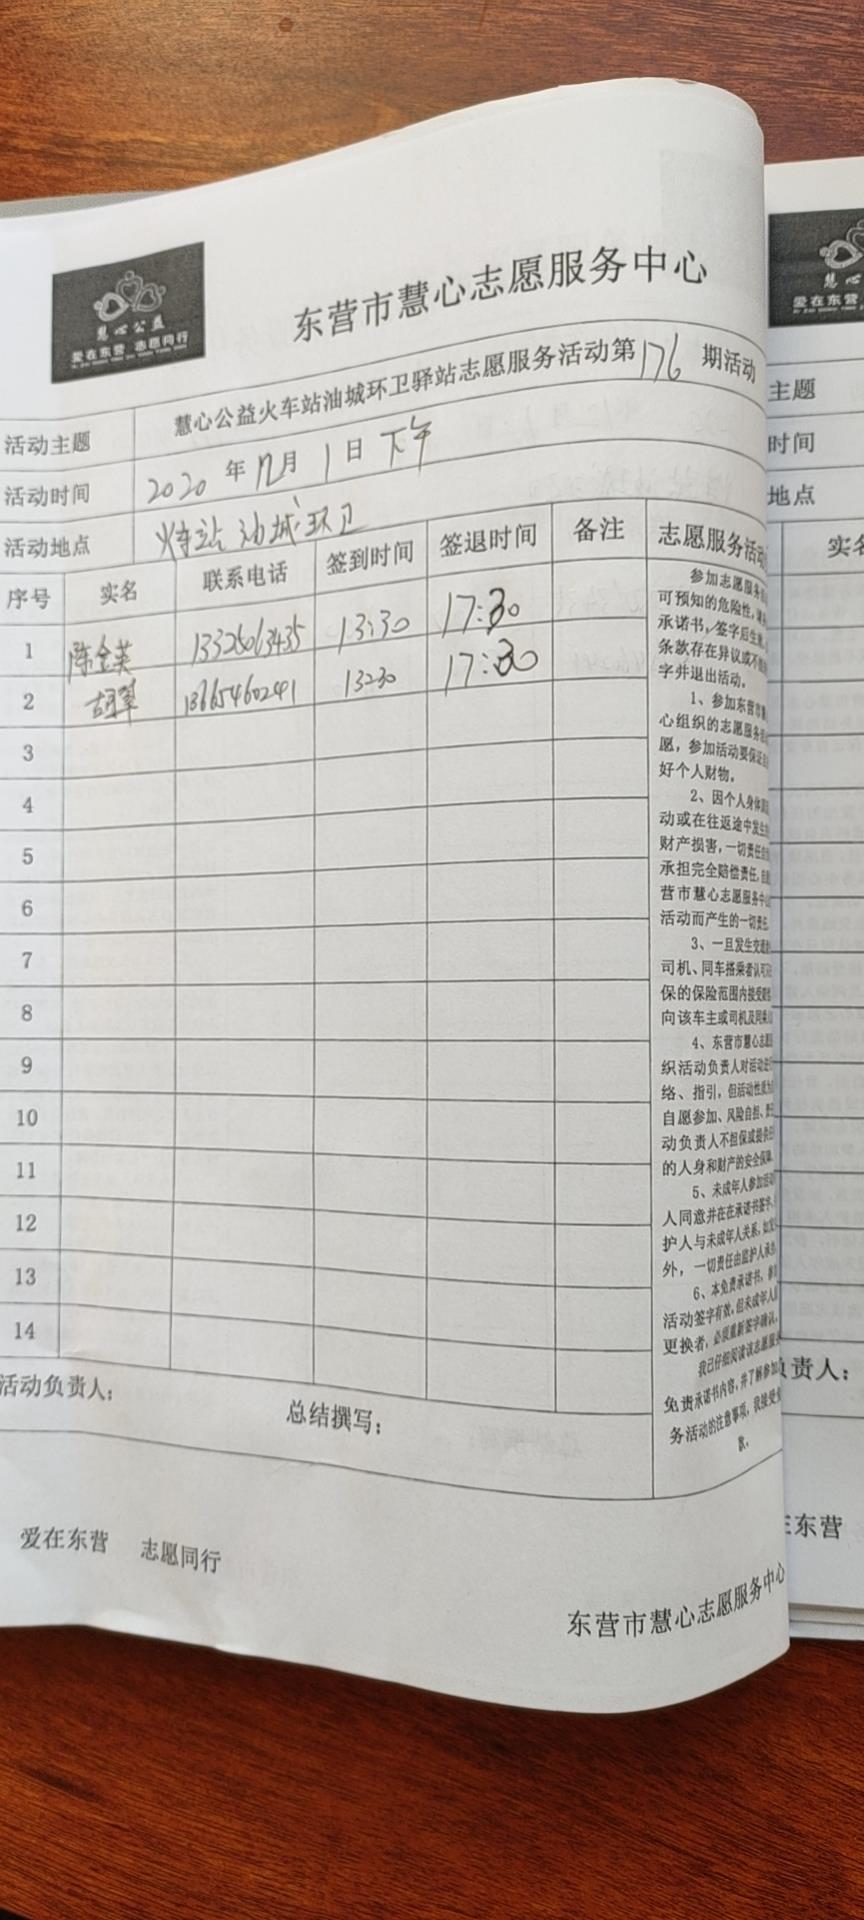 慧心公益
爱在东营 志愿同行
东营市慧心志愿服务中心
活动主题 慧心公益火车站油城环卫驿站志愿服务活动第176期活动
活动时间 2020年12月1日下午
活动地点 火车站 油城环卫
序号 实名 联系电话 签到时间 签退时间 备注
1 陈金英 13325063435 13:30 17:30
2 胡翠 13665460241 1330 17:30
3
4
5
6
7
8
9
10
11
12
13
14
志愿服务活动
参加志愿服务
可预知的危险性,
承诺书,签字后生
条款存在异议或不
字并退出活动。
1、参加东营市慧
心组织的志愿服务
愿,参加活动要保证
好个人财物。
2、因个人身体
动或在往返途中发生
财产损害,一切责任
承担完全赔偿责任,
营市慧心志愿服务中心
活动而产生的一切责任
3、一旦发生交通
司机、同车搭乘者认可
保的保险范围内接受
向该车主或司机及同乘
4、东营市慧心志愿
织活动负责人对活动进
络、指引,但活动性质为
自愿参加、风险自担、
动负责人不担保或提供
的人身和财产的安全保障。
5、未成年人参加活动
人同意并在在承诺书签字,
护人与未成年人关系,如
外,一切责任由监护人承担
6、本免责承诺书,
活动签字有效,但未成年人
更换者,必须重新签字确认。
我已仔细阅读该志愿服
免责承诺书内容,并了解参加
务活动的注意事项,我接受
款。
活动负责人:
总结撰写:
爱在东营 志愿同行
东营市慧心志愿服务中心
慧心
爱在东营
主题
时间
地点
实名
负责人:
东营